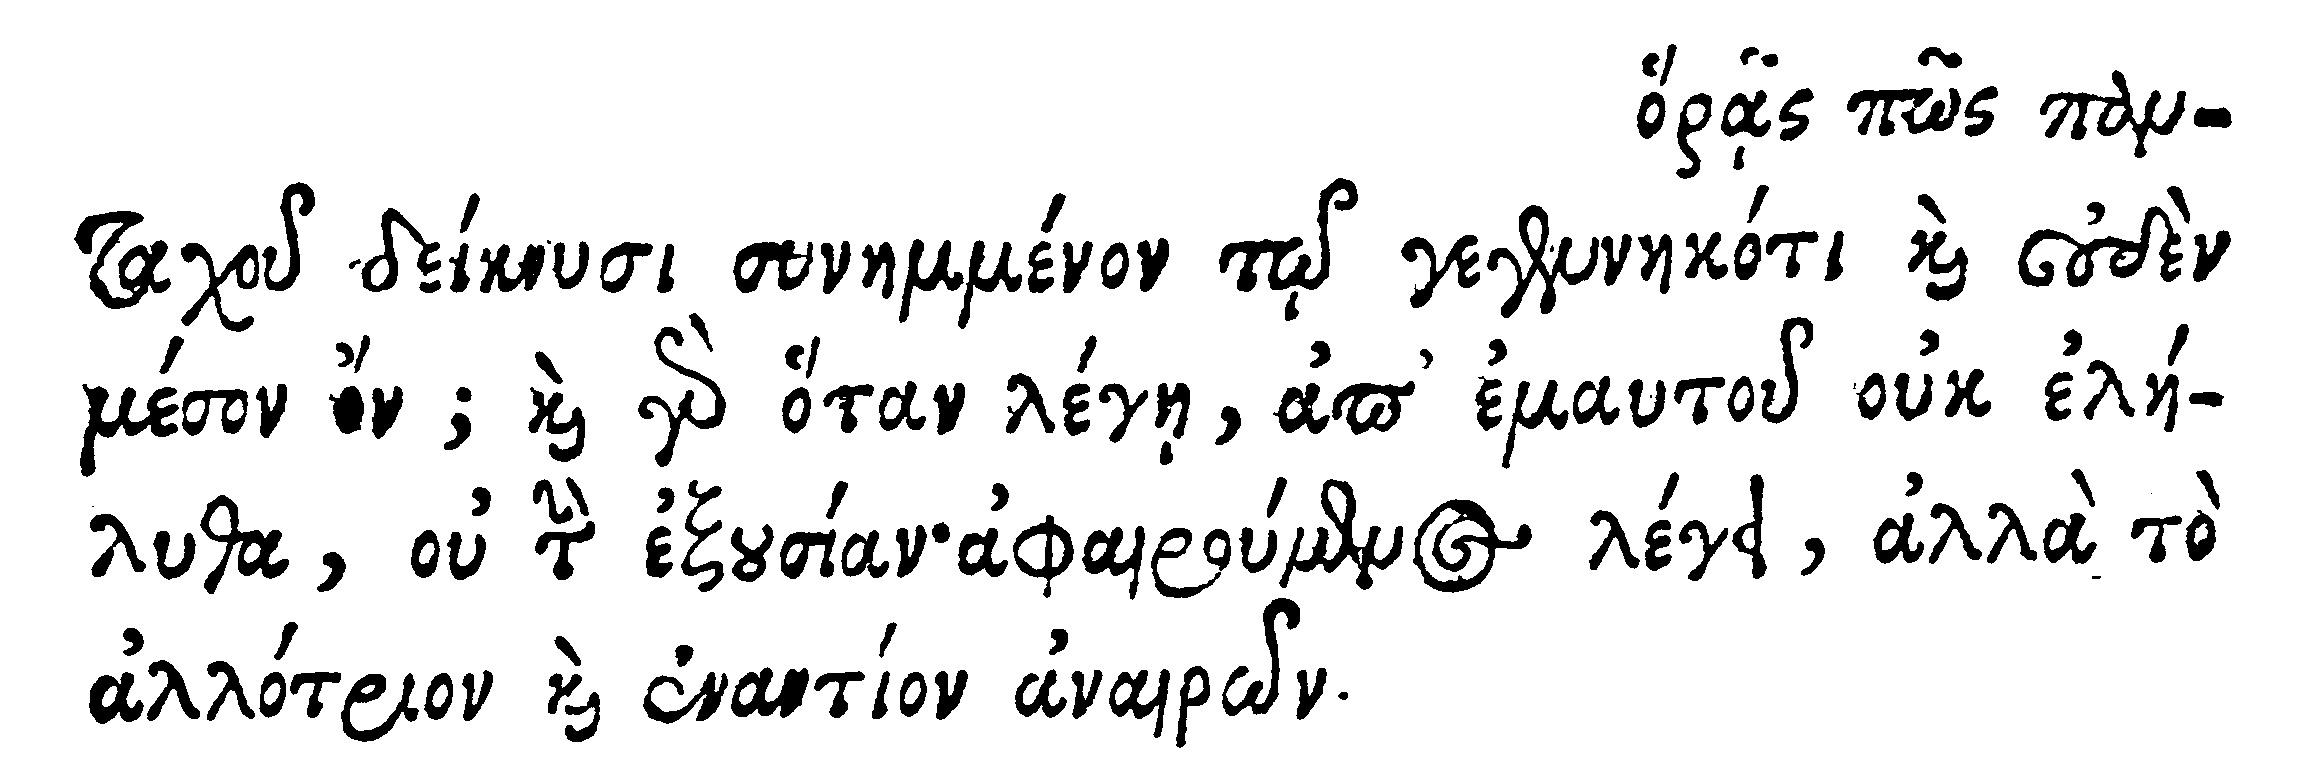 ὁρᾷς πῶς παν-
ταχοῦ δείκνυσι συνημμένον τῷ γεγεννηκότι καὶ οὐδὲν
μέσον ὄν; καὶ γὰρ ὅταν λέγῃ, ἀπ' ἐμαυτοῦ οὐκ ἐλή-
λυθα, οὐ τὴν ἐξουσίαν ἀφαιρούμενος λέγει, ἀλλὰ τὸ
ἀλλότριον καὶ ἐναντίον ἀναιρῶν.